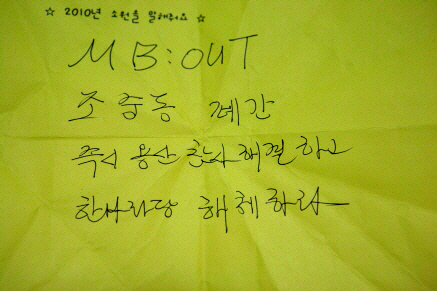 ☆ 2010년 소원을 말해줘요 ☆
MB:OUT
조중동 폐간
즉시 용산참사 해결하고
한나라당 해체하라